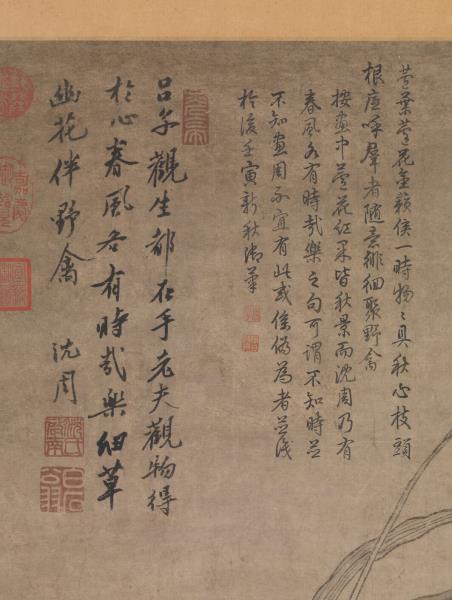 蓼葉蓼花金候一時物〻具秋心枝頭
根底呼羣者随意徘徊聚野禽
按畫中蓼花紅果皆秋景而沈周乃有
春風各有時哉樂之句可謂不知時並
不知畫周不宜有此或係偽為者並識
於後壬寅新秋御筆
吕子觀生都在手老夫觀物得
於心春風各有時哉樂細草
幽花伴野禽 沈周